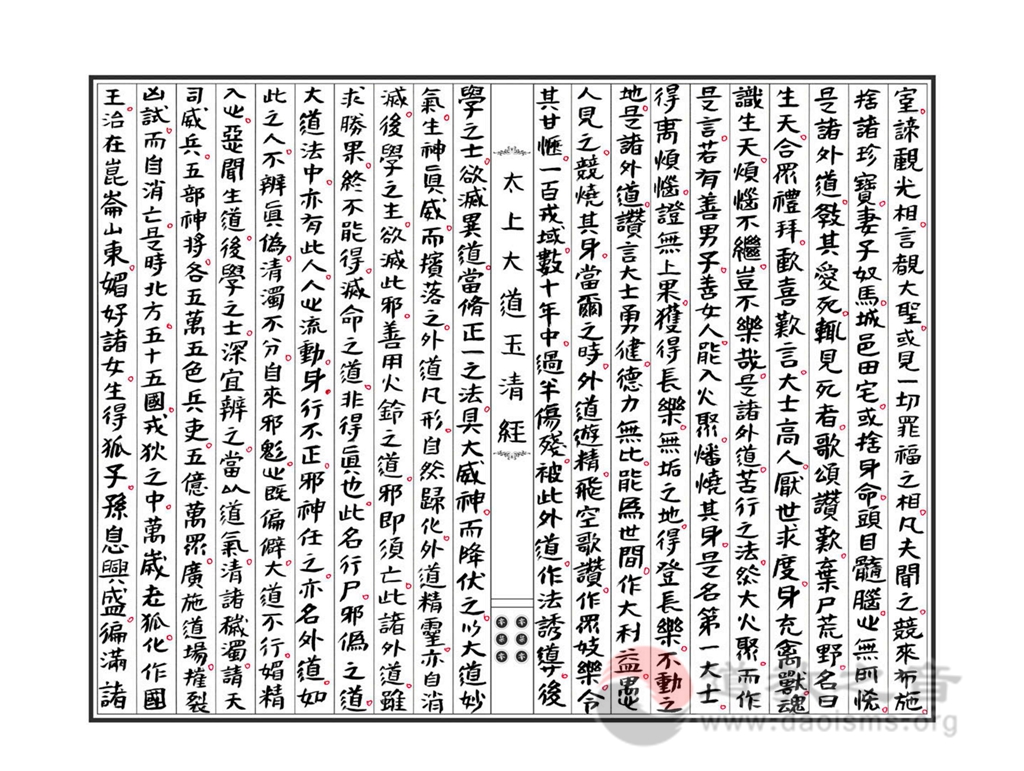 室諦觀光相言覩大聖或見一切罪福之相凡夫聞之競來布施
捨諸珍寶妻子奴馬城邑田宅或捨身命頭目髓腦㞢無所恡
是諸外道敎其愛死輒見死者歌頌讚歎棄尸荒野名曰
生天合眾禮拜歡喜歎言大士高人厭世求度身充禽獸魂
識生天煩惱不繼豈不樂哉是諸外道苦行之法然大火聚而作
是言若有善男子善女人能入火聚燔燒其身是名第一大士
得离煩惱證無上果獲得長樂無垢之地得登長樂不動之
地是諸外道讚言大士勇健德力無比能為世間作大利益愚㞢
人見之競燒其身當爾之時外道遊精飛空歌讚作眾妓樂令
其甘愜一百戎域數十年中過半傷殘被此外道作法誘導後
太上大道玉清經
學之士欲滅異道當脩正一之法具大威神而降伏之以大道妙
氣生神真威而擯落之外道凡形自然歸化外道精靈亦自消
滅後學之主欲滅此邪善用火鈴之道邪即須亡此諸外道雖
求勝果終不能得滅命之道非得真也此名行尸邪偽之道
大道法中亦有此人人㞢流動身行不正邪神任之亦名外道如
此之人不辨真偽清濁不分自來邪魁㞢既偏僻大道不行媚精
入㞢惡聞生道後學之士深宜辨之當以道氣清諸穢濁請天
司威兵五部神將各五萬五色兵吏五億萬眾廣施道場摧裂
凶試而自消亡是時北方五十五國戎狄之中萬歲老狐化作國
王治在崑崙山東媚好諸女生得狐子孫息興盛徧滿諸
道教之音
www.daoisms.org